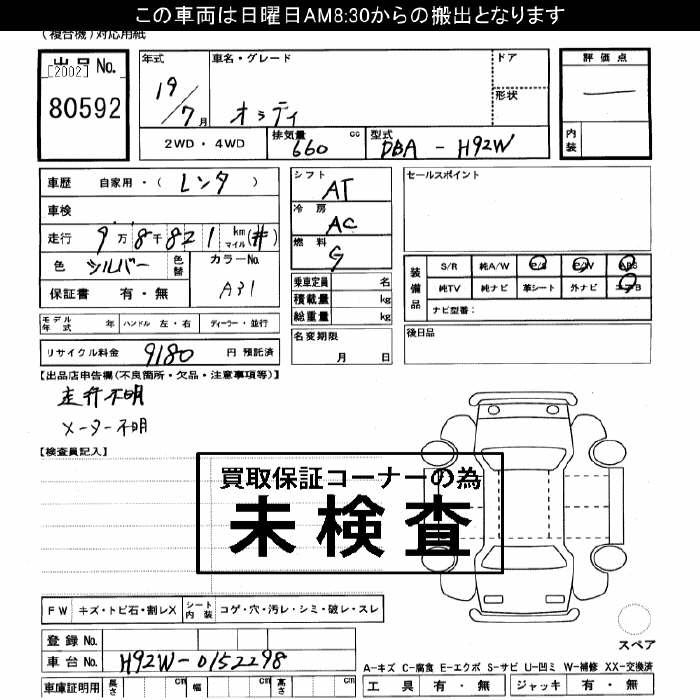 この車両は日曜日AM8:30からの搬出となります
(複合機)対応用紙
出品 No. [2002] 80592
年式 19/7月
車名・グレード オッティ
ドア
形状
評価点 —
内装
2WD・4WD 排気量 660 cc 型式 DBA - H92W
車歴 自家用・(レンタ)
車検
走行 9万8千821 km マイル (#)
色 シルバー 色替 カラーNo. A31
保証書 有・無
シフト AT
冷房 AC
燃料 G
乗車定員 名
積載量 kg
総重量 kg
名変期限 月 日
セールスポイント
装備品 S/R 純A/W P/S P/W ABS
純TV 純ナビ 革シート 外ナビ エアB
ナビ型番:
後日品
モデル年式 年 ハンドル 左・右 ディーラー・並行
リサイクル料金 9180 円 預託済
【出品店申告欄(不良箇所・欠品・注意事項等)】
走行不明
メーター不明
【検査員記入】
買取保証コーナーの為
未検査
FW キズ・トビ石・割レX シート内装 コゲ・穴・汚レ・シミ・破レ・スレ
登録 No.
車台 No. H92W-0152298
車庫証明用 長さ cm 幅 cm 高さ cm
スペア
A-キズ C-腐食 E-エクボ S-サビ U-凹ミ W-補修 XX-交換済
工具 有・無 ジャッキ 有・無